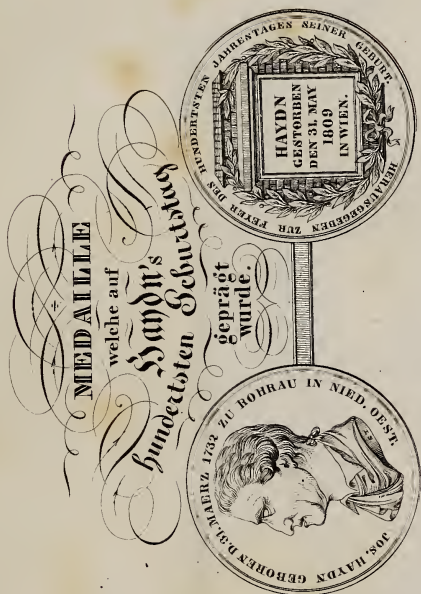 MEDAILLE
welche auf
Haydn's
hundertsten Geburtstag
geprägt
wurde.
JOS. HAYDN GEBOREN D. 31. MAERZ 1732 ZU ROHRAU IN NIED. OEST.
HERAUSGEGEBEN ZUR FEYER DES HUNDERTSTEN JAHRENTAGES SEINER GEBURT.
HAYDN
GESTORBEN
DEN 31. MAY
1809
IN WIEN.